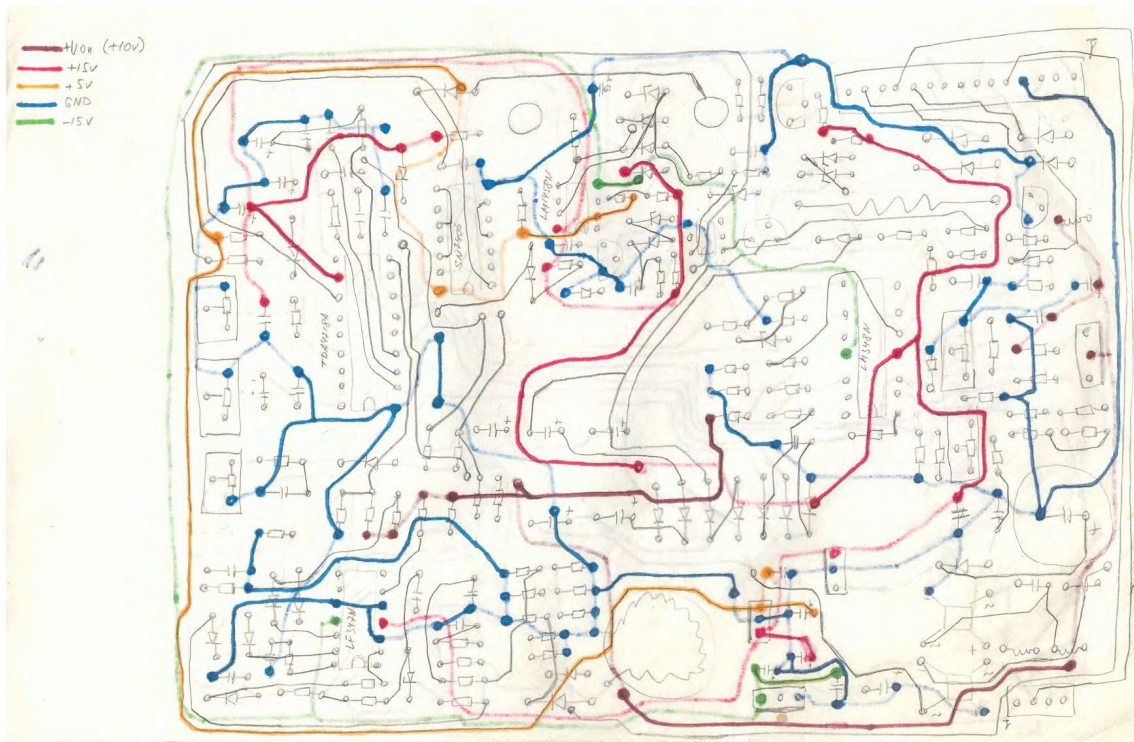 +Uon (+10v)
+15v
+5v
GND
-15v
LM1458N
SN7406
TDA4718A
LM348N
LF347N